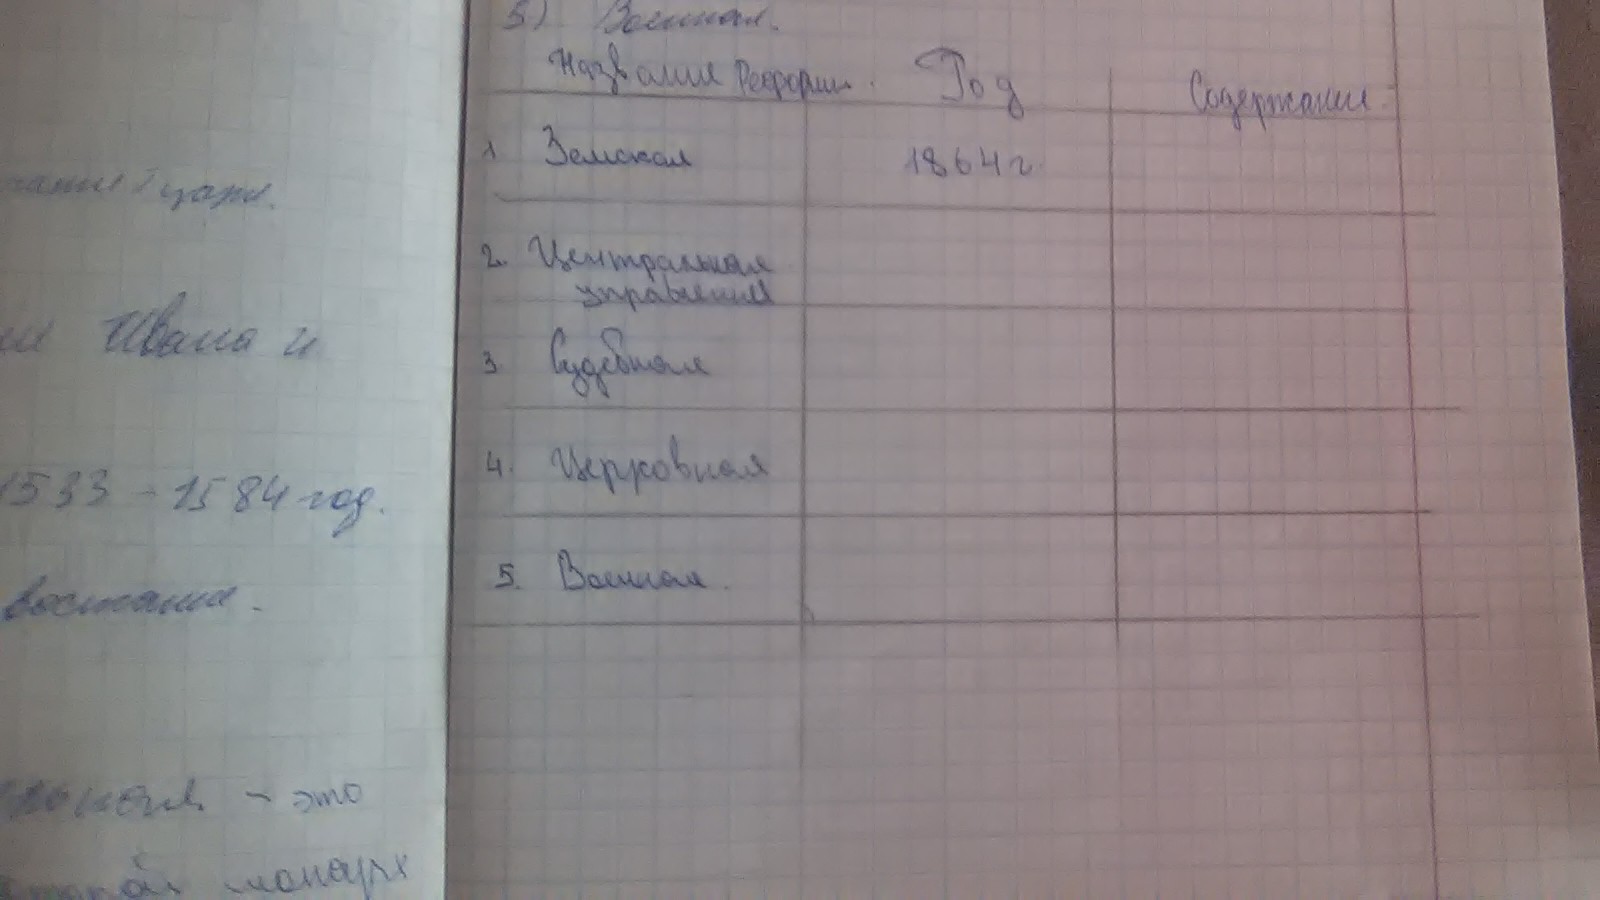 царя.
Ивана и
1533 - 1584 год.
восстание.
- это
монарх
5) Военная.
Название Реформы. Год Содержание.
1 Земская 1864 г.
2. Центральная
управления
3. Судебная
4. Церковная
5. Военная.